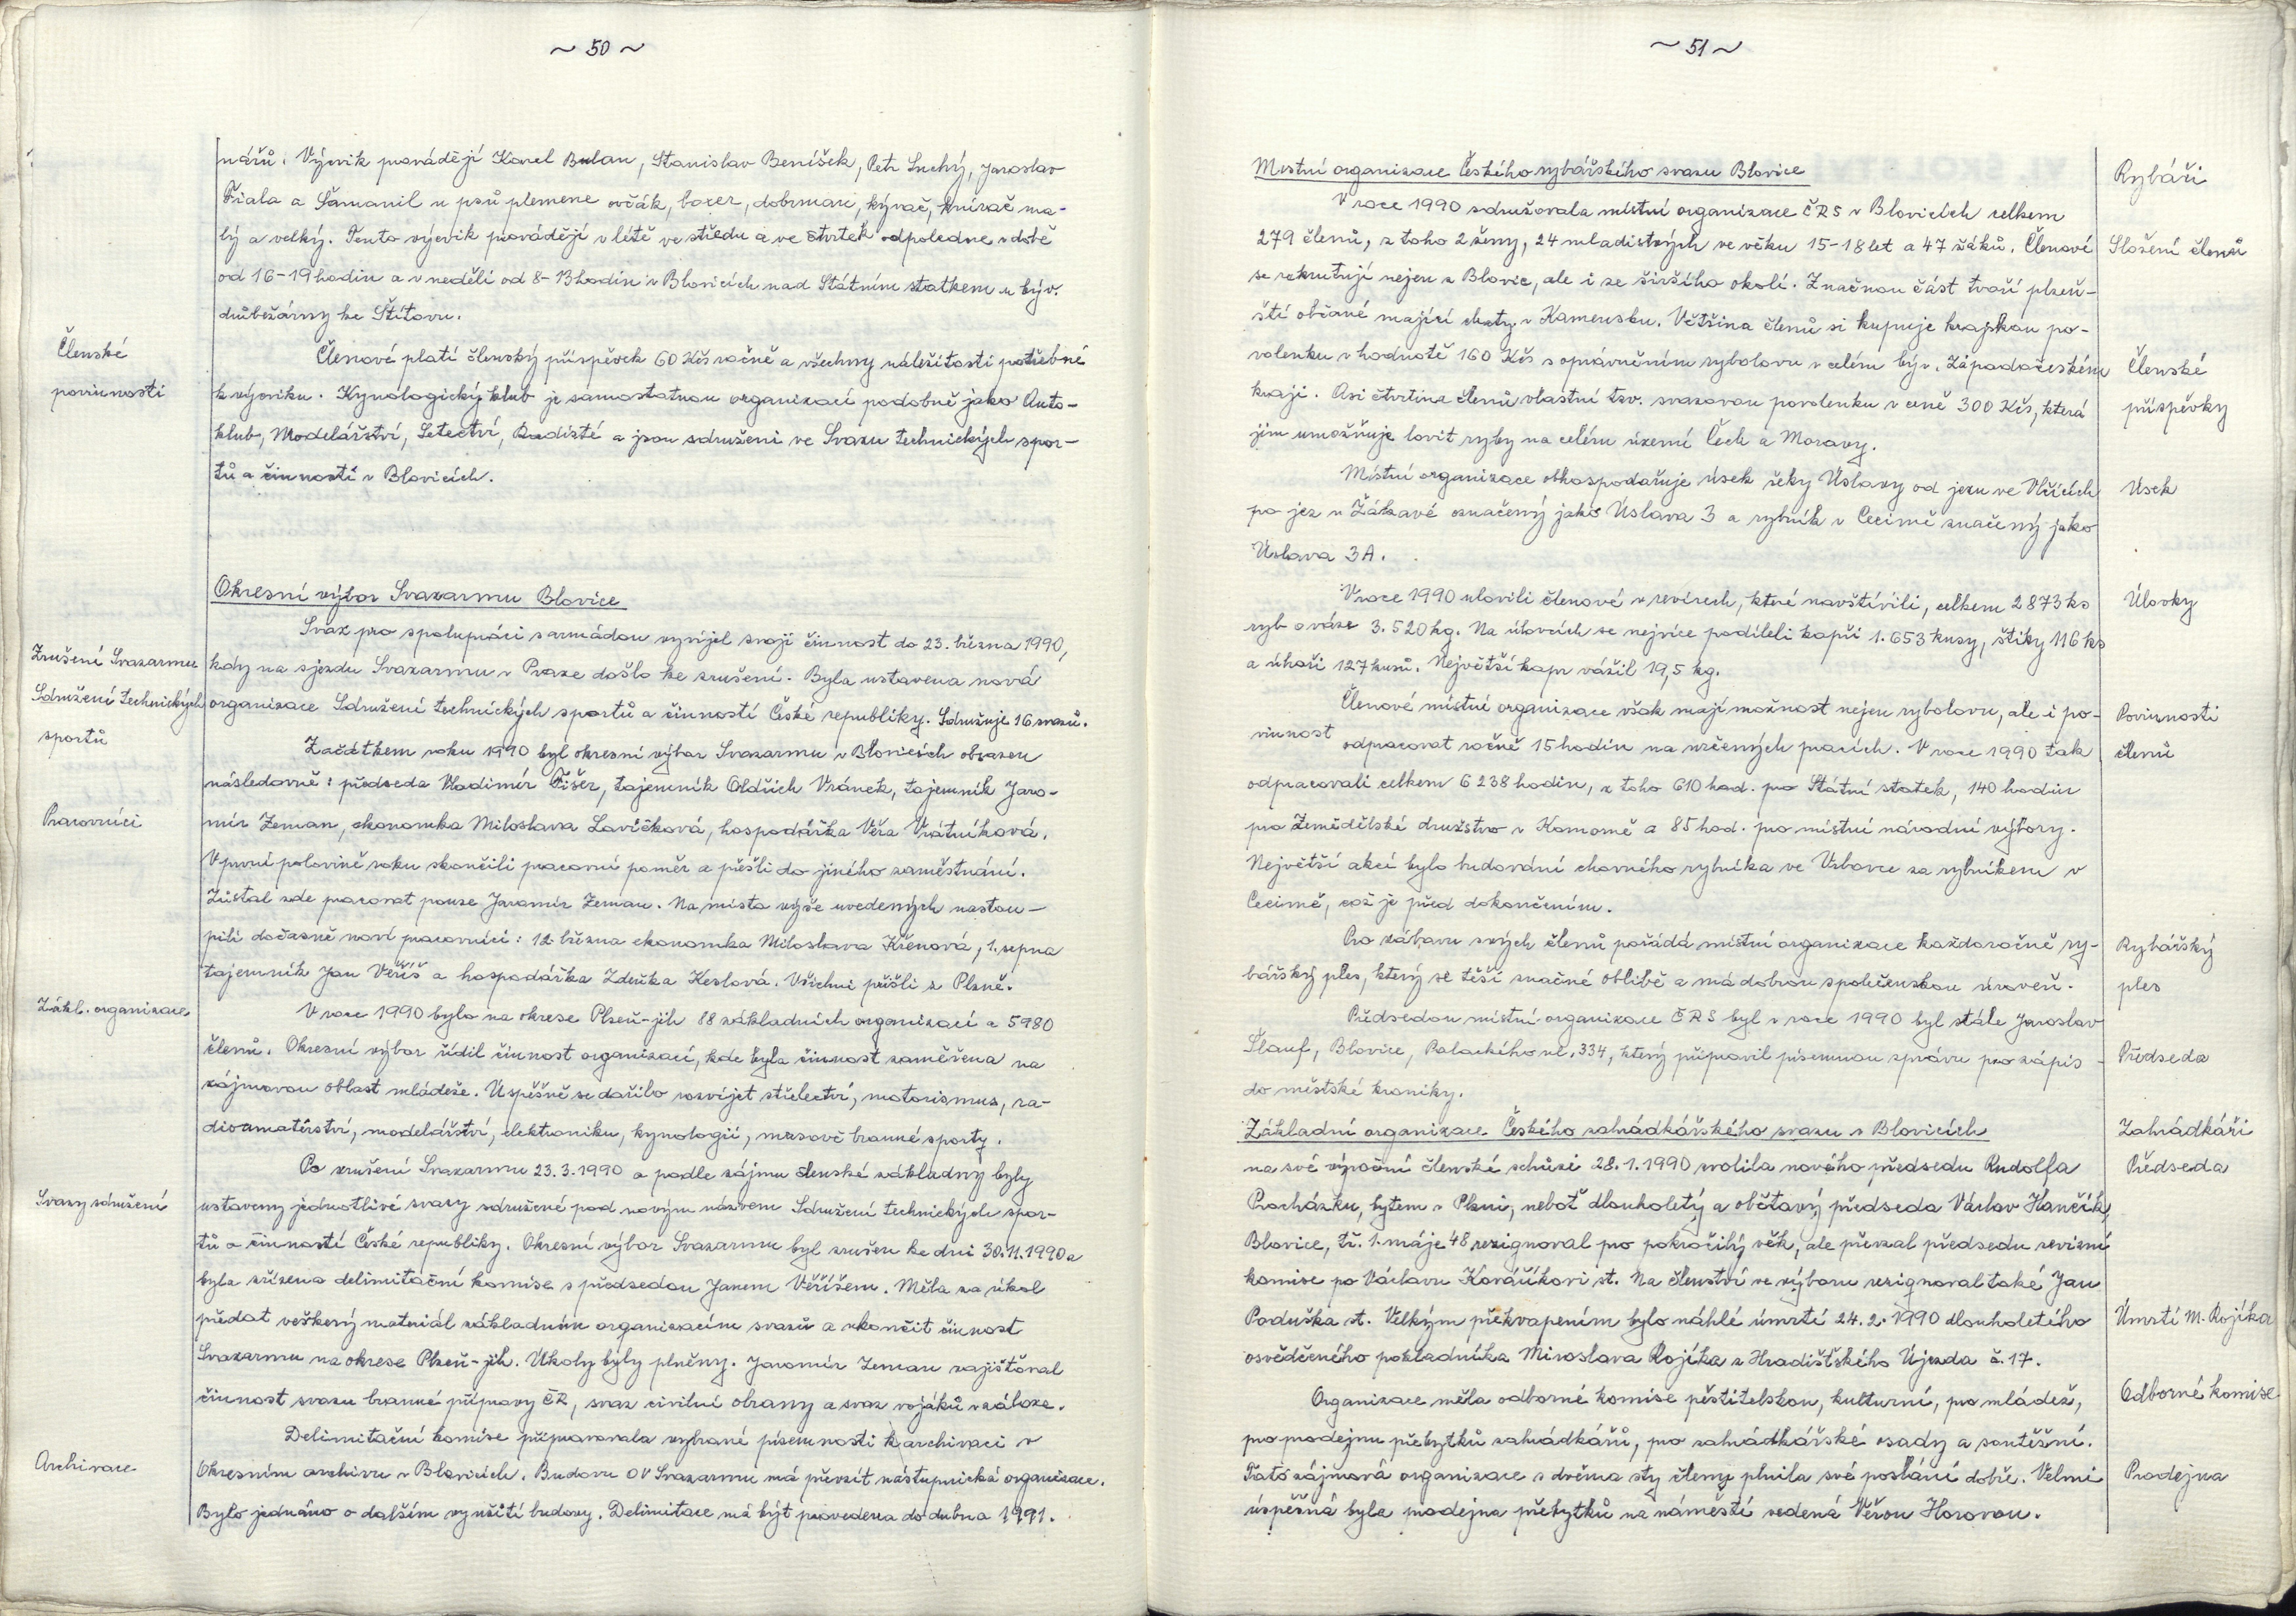 ~ 50 ~
nářů. Výcvik provádějí Karel Bulan, Stanislav Beníšek, Petr Suchý, Jaroslav
Fiala a Šamanil u psů plemene ovčák, boxer, dobrman, kývač, knírač ma-
lý a velký. Tento výcvik provádějí v létě ve středu a ve čtvrtek odpoledne v době
od 16-19 hodin a v neděli od 8-13 hodin v Blovicích nad Státním statkem u býv.
drůbežárny ke Štítovu.
Členské
povinnosti
Členové platí členský příspěvek 60 Kčs ročně a všechny náležitosti potřebné
k výcviku. Kynologický klub je samostatnou organizací podobně jako Auto-
klub, Modelářství, Letectví, Radisté a jsou sdruženi ve Svazu technických spor-
tů a činností v Blovicích.
Okresní výbor Svazarmu Blovice
Svaz pro spolupráci s armádou vyvíjel svoji činnost do 23. března 1990,
Zrušení Svazarmu
kdy na sjezdu Svazarmu v Praze došlo ke zrušení. Byla ustavena nová
Sdružení technických
sportů
organizace Sdružení technických sportů a činností České republiky. Sdružuje 16 svazů.
Začátkem roku 1990 byl okresní výbor Svazarmu v Blovicích obsazen
následovně: předseda Vladimír Fišer, tajemník Oldřich Vránek, tajemník Jaro-
Pracovníci
mír Zeman, ekonomka Miloslava Lavičková, hospodářka Věra Vrátníková.
V první polovině roku skončili pracovní poměr a přešli do jiného zaměstnání.
Zůstal zde pracovat pouze Jaromír Zeman. Na místa výše uvedených nastou-
pili dočasně noví pracovníci: 12. března ekonomka Miloslava Křenová, 1. srpna
tajemník Jan Věříš a hospodářka Zdeňka Keslová. Všichni přišli z Plzně.
Zákl. organizace
V roce 1990 bylo na okrese Plzeň-jih 88 základních organizací a 5980
členů. Okresní výbor řídil činnost organizací, kde byla činnost zaměřena na
zájmovou oblast mládeže. Úspěšně se dařilo rozvíjet střelectví, motorismus, ra-
dioamatérství, modelářství, elektroniku, kynologii, masově branné sporty.
Po zrušení Svazarmu 23.3.1990 a podle zájmu členské základny byly
Svazy sdružení
ustaveny jednotlivé svazy sdružené pod novým názvem Sdružení technických spor-
tů a činností České republiky. Okresní výbor Svazarmu byl zrušen ke dni 30.11.1990 a
byla zřízena delimitační komise s předsedou Janem Věříšem. Měla za úkol
předat veškerý materiál základním organizacím svazů a ukončit činnost
Svazarmu na okrese Plzeň-jih. Úkoly byly plněny. Jaromír Zeman zajišťoval
činnost svazu branné přípravy ČR, svaz civilní obrany a svaz vojáků v záloze.
Delimitační komise připravovala vybrané písemnosti k archivaci v
Archivace
Okresním archivu v Blovicích. Budovu OV Svazarmu má převzít nástupnická organizace.
Bylo jednáno o dalším využití budovy. Delimitace má být provedena do dubna 1991.
~ 51 ~
Místní organizace Českého rybářského svazu Blovice
Rybáři
V roce 1990 sdružovala místní organizace ČRS v Blovicích celkem
279 členů, z toho 2 ženy, 24 mladistvých ve věku 15-18 let a 47 žáků. Členové
Složení členů
se rekrutují nejen z Blovic, ale i ze širšího okolí. Značnou část tvoří plzeň-
ští občané mající chaty v Kamensku. Většina členů si kupuje krajskou po-
volenku v hodnotě 160 Kčs s oprávněním rybolovu v celém býv. Západočeském
Členské
příspěvky
kraji. Asi čtvrtina členů vlastní tzv. svazovou povolenku v ceně 300 Kčs, která
jim umožňuje lovit ryby na celém území Čech a Moravy.
Místní organizace obhospodařuje úsek řeky Úslavy od jezu ve Vlčicích
Úsek
po jez v Žákavé označený jako Úslava 3 a rybník v Cecimě značený jako
Úslava 3A.
V roce 1990 ulovili členové v revírech, které navštívili, celkem 2873 ks
Úlovky
ryb o váze 3.520 kg. Na úlovcích se nejvíce podíleli kapři 1.653 kusy, štiky 116 ks
a úhoři 127 kusů. Největší kapr vážil 19,5 kg.
Členové místní organizace však mají možnost nejen rybolovu, ale i po-
Povinnosti
členů
vinnost odpracovat ročně 15 hodin na určených pracích. V roce 1990 tak
odpracovali celkem 6238 hodin, z toho 610 hod. pro Státní statek, 140 hodin
pro Zemědělské družstvo v Komorně a 85 hod. pro místní národní výbory.
Největší akcí bylo budování chovného rybníka ve Vrbovce za rybníkem v
Cecimě, což je před dokončením.
Pro zábavu svých členů pořádá místní organizace každoročně ry-
Rybářský
ples
bářský ples, který se těší značné oblibě a má dobrou společenskou úroveň.
Předsedou místní organizace ČRS byl v roce 1990 byl stále Jaroslav
Šlauf, Blovice, Palackého ul. 334, který připravil písemnou zprávu pro zápis
Předseda
do městské kroniky.
Základní organizace Českého zahrádkářského svazu v Blovicích
Zahrádkáři
na své výroční členské schůzi 28.1.1990 zvolila nového předsedu Rudolfa
Předseda
Procházku, bytem v Plzni, neboť dlouholetý a obětavý předseda Václav Hančík,
Blovice, tř. 1. máje 48 rezignoval pro pokročilý věk, ale převzal předsedu revizní
komise po Václavu Kováříkovi st. Na členství ve výboru rezignoval také Jan
Poduška st. Velkým překvapením bylo náhlé úmrtí 24.2.1990 dlouholetého
Úmrtí M. Rojíka
osvědčeného pokladníka Miroslava Rojíka z Hradišťského Újezda č. 17.
Organizace měla odborné komise pěstitelskou, kulturní, pro mládež,
Odborné komise
pro prodejnu přebytků zahrádkářů, pro zahrádkářské osady a soutěžní.
Tato zájmová organizace s dvěma sty členy plnila své poslání dobře. Velmi
Prodejna
úspěšná byla prodejna přebytků na náměstí vedená Věrou Horovou.